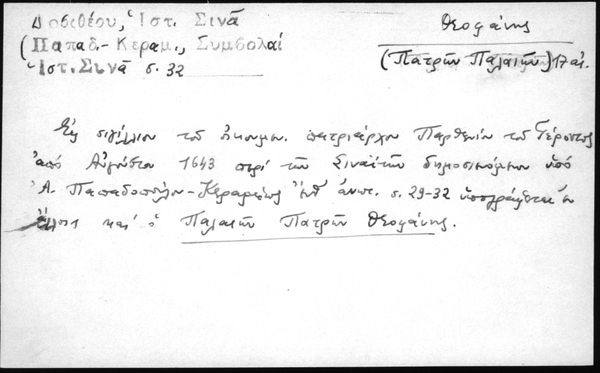 Δοσιθέου, Ἱστ. Σινᾶ
(Παπαδ.-Κεραμ., Συμβολαί
Ἱστ. Σινᾶ σ. 32
Θεοφάνης
(Πατρῶν Παλαιῶν) 17 αἰ.
Εἰς σιγίλλιον τοῦ Οἰκουμεν. πατριάρχου Παρθενίου τοῦ Γέροντος
ἀπό Αὐγούστου 1643 περί τῶν Σιναϊτῶν δημοσιευόμενον ὑπό
Ἀ. Παπαδοπούλου-Κεραμέως ἔνθ' ἀνωτ. σ. 29-32 ὑπογράφεται ἐν
ἄλλοις καί ὁ Παλαιῶν Πατρῶν Θεοφάνης.